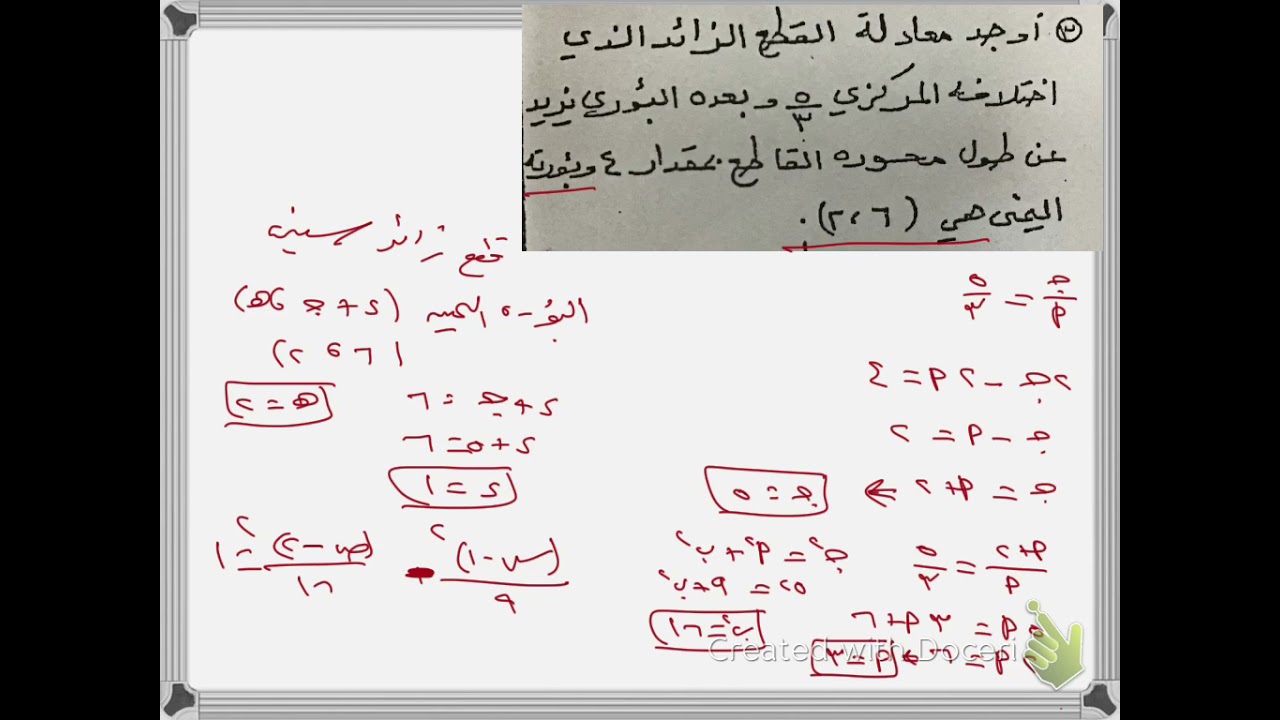 ٣ أوجد معادلة القطع الزائد الذي
اختلافه المركزي ٥/٣ وبعده البؤري يزيد
عن طول محوره القاطع بمقدار ٤ وبؤرته
اليمنى هي (٦، ٢).
جـ/أ = ٥/٣
٢جـ - ٢أ = ٤
جـ - أ = ٢
جـ = أ + ٢ ← جـ = ٥
(أ+٢)/أ = ٥/٣
٥أ = ٣أ + ٦
٢أ = ٦ ← أ = ٣
جـ٢ = أ٢ + ب٢
٢٥ = ٩ + ب٢
ب٢ = ١٦
قطع زائد سيني
البؤرة اليمين (د + جـ ، هـ)
(٦ ، ٢)
د + جـ = ٦
هـ = ٢
د + ٥ = ٦
د = ١
(س - ١)٢/٩ - (ص - ٢)٢/١٦ = ١
Created with Doceri